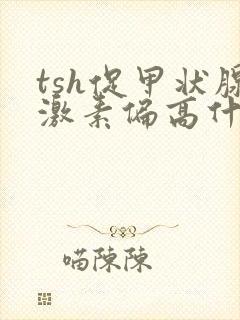 tsh促甲状腺
激素偏高什
喵陈陈